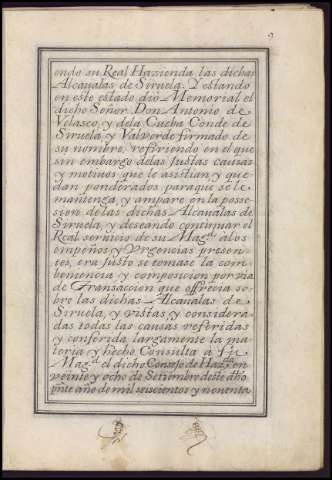 endo su Real Hazienda las dichas
Alcaualas de Siruela. Y estando
en este estado dio Memorial el
dicho Señor Don Antonio de
Velasco, y dela Cueba Conde de
Siruela, y Valverde firmado de
su nombre, refiriendo en el que
sin embargo delas Justas causas
y motiuos que le asistian y que
dan ponderados paraque se le
mantenga, y ampare en la posse
sion delas dichas Alcaualas de
Siruela, y deseando continuar el
Real seruicio de su Magd. alos
empeños y Vrgencias presen
tes, era Justo se tomase la com
beniencia y composicion por via
de Transaccion que offrecia so
bre las dichas Alcaualas de
Siruela, y vistas y considera
das todas las causas referidas
y conferida largamente la ma
teria y hecho Consulta á su
Magd. el dicho Consejo de Hazda. en
veinte y ocho de Setiembre deste
año de mil seiscientos y nouenta